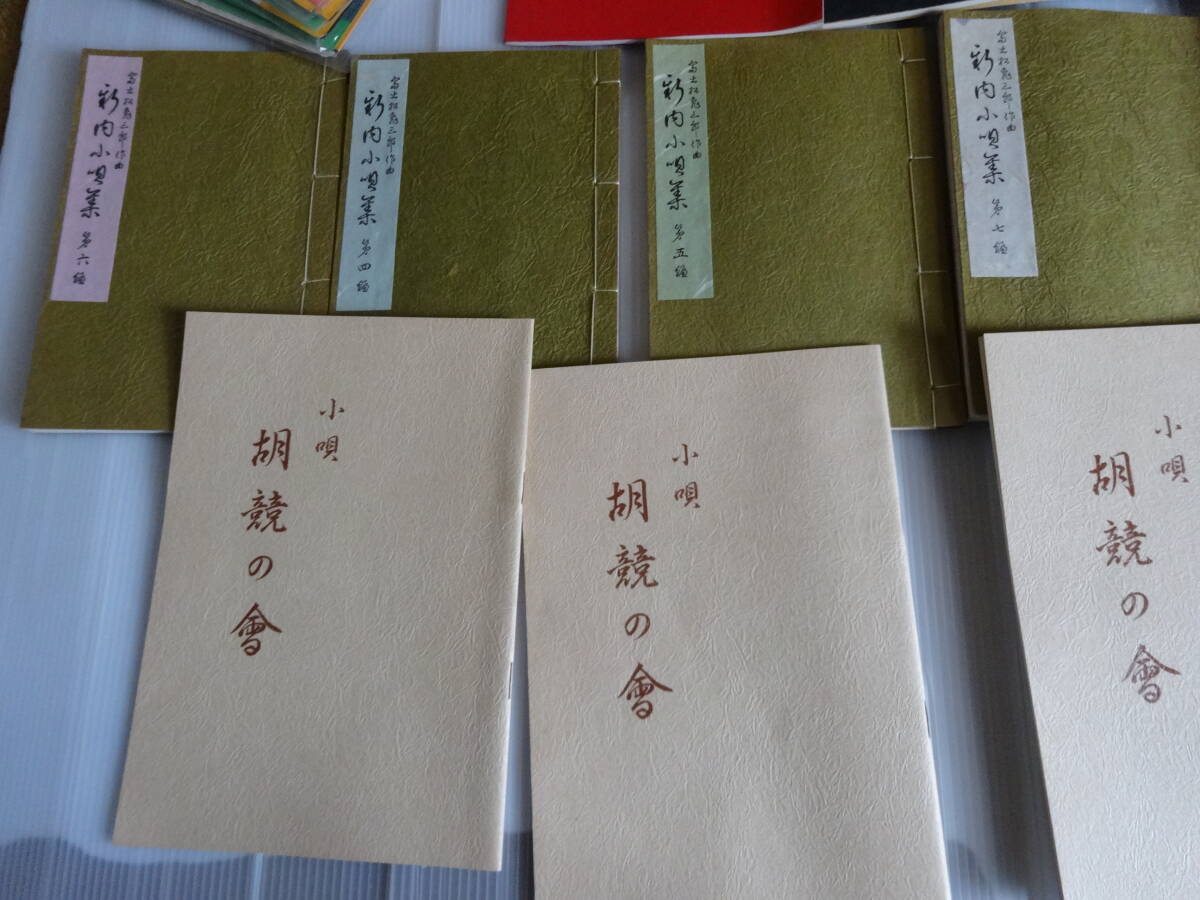 富士松亀三郎作曲
新内小唄集 第六編
富士松亀三郎作曲
新内小唄集 第四編
富士松亀三郎作曲
新内小唄集 第五編
富士松亀三郎作曲
新内小唄集 第七編
小唄
胡競の會
小唄
胡競の會
小唄
胡競の會